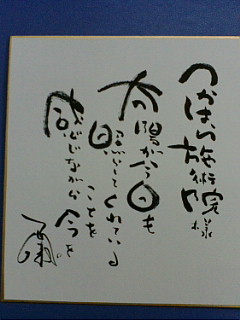 つかはら施術院様
太陽が今日も
照らしてくれている
ことを
感じながら今を